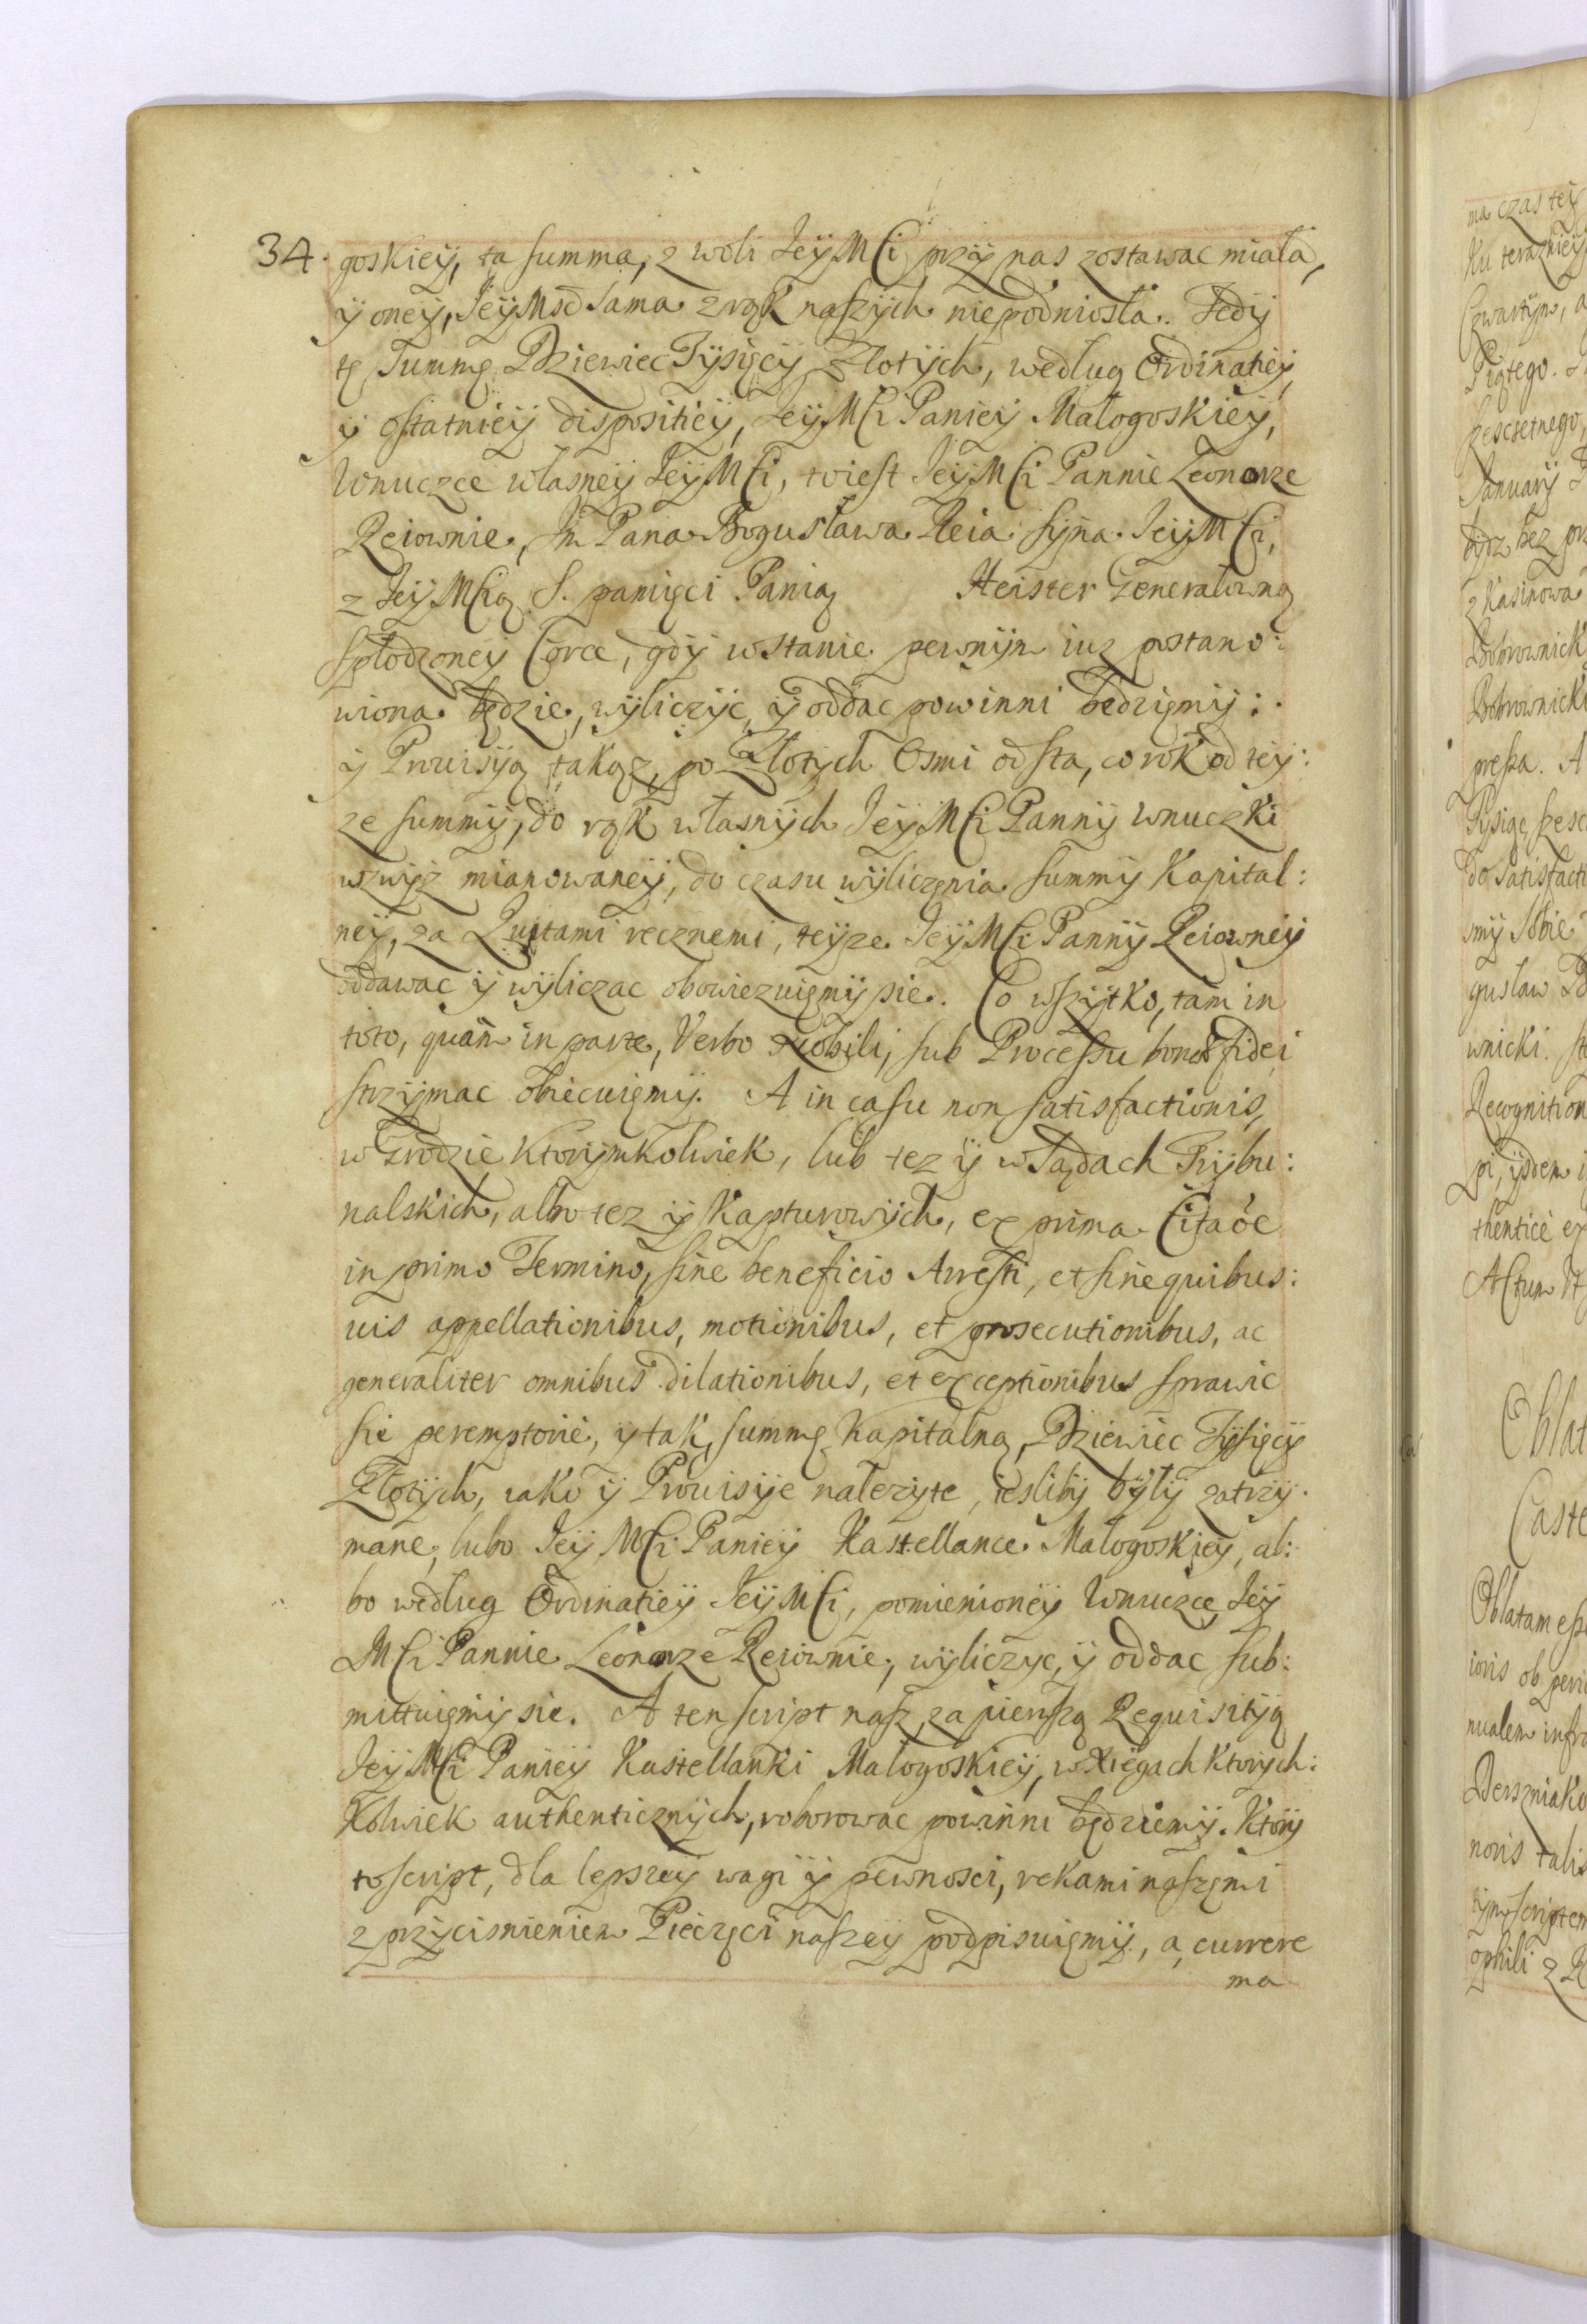 34. goskiey, ta summa, z woli JeyMCi przy nas zostawac miała,
y oney, JeyMsć sama z rąk naszych niepodniosła. Tedy
tę Summę Dziewiec Tysięcy Złotych, według Ordinatiey,
y ostatniey dispositiey, JeyMCi Paniey Małogoskiey,
Wnuczce własney JeyMCi, to iest JeyMCi Pannie Leonorze
Reiownie, Jm Pana Bogusława Reia syna JeyMCi,
z JeyMCią S. pamięci Panią Heister Generałowną
spłodzoney Corce, gdy w stanie pewnym iuz postano:
wiona będzie, wyliczyc, y oddac powinni będziemy:
y Prouisyą takąz, po Złotych Osmi od sta, co rok od tey:
ze summy, do rąk własnych JeyMCi Panny Wnuczki
wzwyz mianowaney, do czasu wyliczenia summy Kapital:
ney, za Quitami recznemi, teyze JeyMCi Panny Reiowney
oddawac y wyliczac obowiezuiemy sie. Co wszytko, tam in
toto, quàm in parte, Verbo Nobili, sub Processu bonae fidei
strzymac obiecuiemy. A in casu non satisfactionis,
w Grodzie Ktorymkolwiek, lub tez y w Sądach Trybu:
nalskich, albo tez y Kapturowych, ex prima Citaõe
in primo Termino, sine beneficio Arresti, et sine quibus:
uis appellationibus, motionibus, et prosecutionibus, ac
generaliter omnibus dilationibus, et exceptionibus sprawic
sie peremptorie, y tak, summę Kapitalną, Dziewiec Tysięcy
Złotych, iako y Prouisye nalezyte, iesliby były zatrzy:
mane, lubo JeyMCi Paniey Kastellance Małogoskiey, al:
bo według Ordinatiey JeyMCi, pomienioney Wnuczce Jey
MCi Pannie Leonorze Reiownie, wyliczyc, y oddac sub:
mittuiemy sie. A ten script nasz, za pierszą Requisityą
JeyMCi Paniey Kastellanki Małogoskiey, w Xięgach Ktorych:
Kolwiek authenticznych, roborowac powinni będziemy. Ktory
to script, dla lepszey wagi y pewnosci, rekami naszemi
z przycisnieniem Pieczęci naszey podpisuiemy, a currere
ma